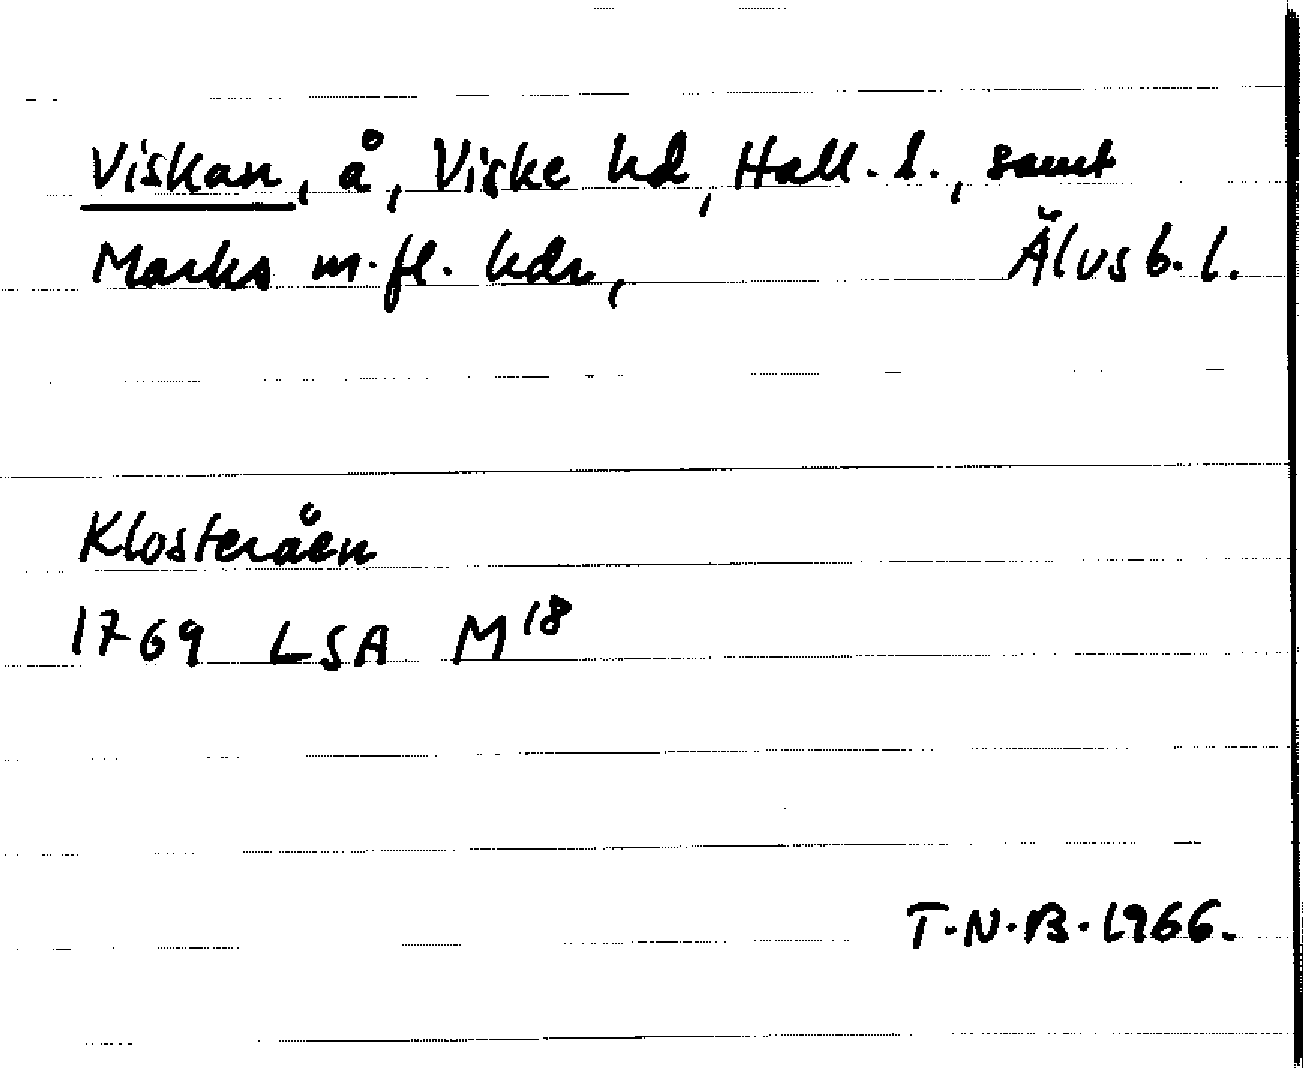 Viskan, å, Viske hd, Hall. l., samt
Marks m.fl. hdr, Älvsb. l.
Klosteråen
1769 LSA M18
T.N.B. 1966.